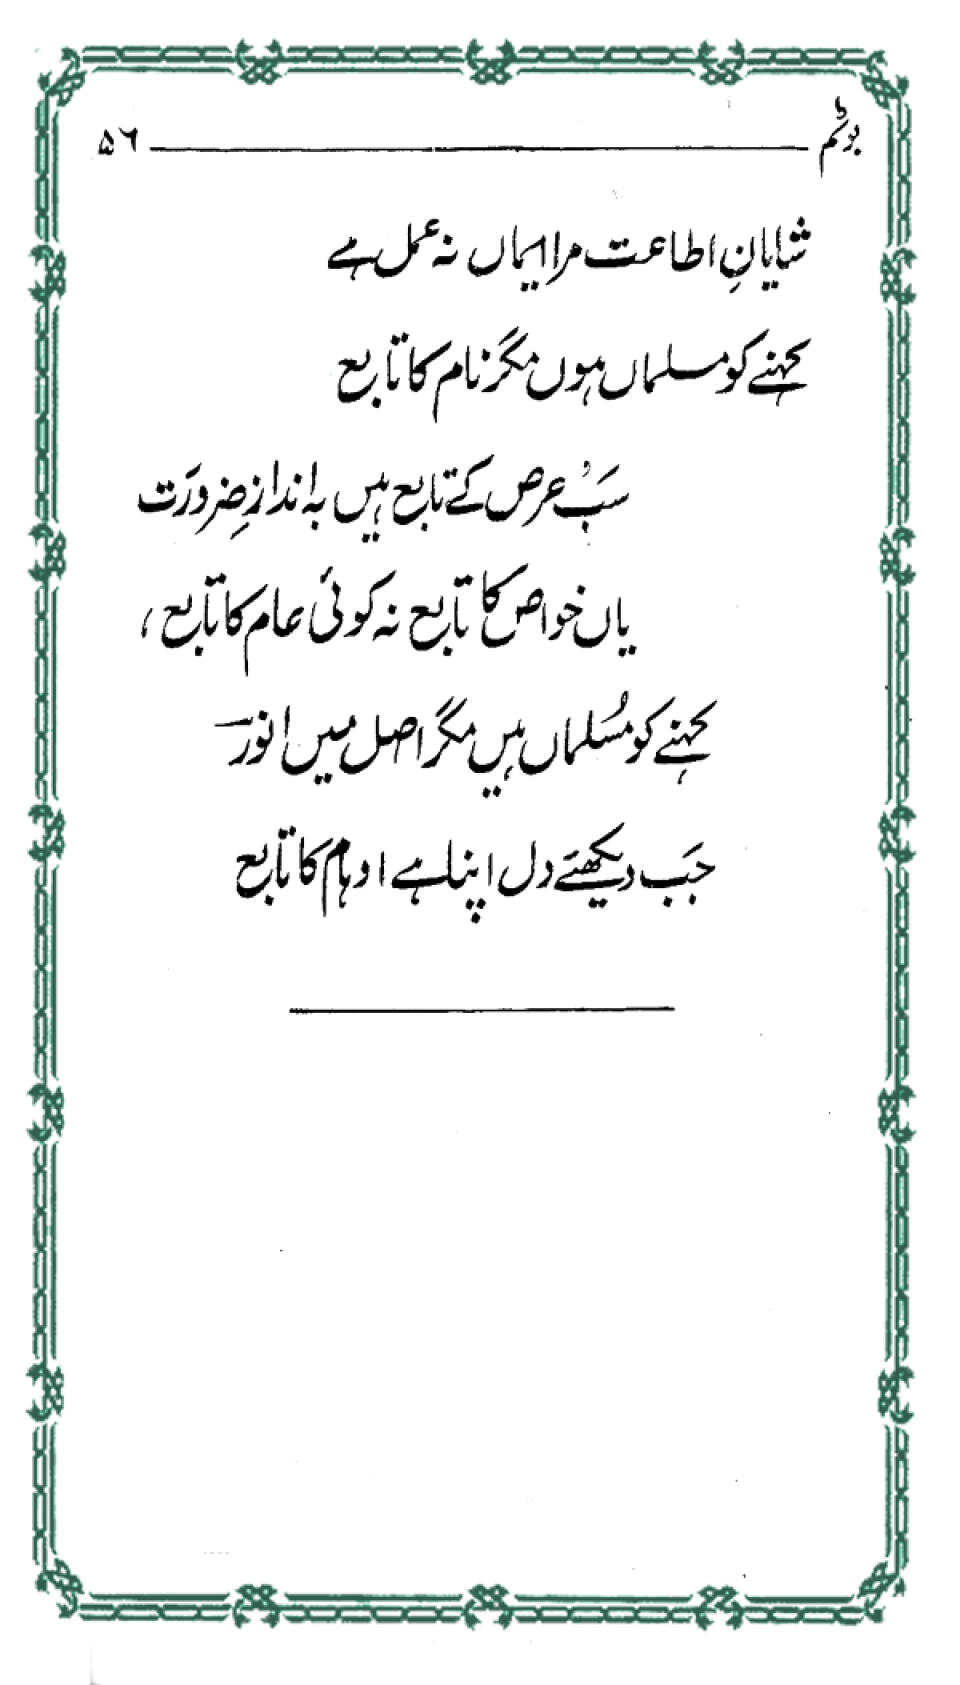 ۵۶
شایانِ اطاعت مرا ایماں نہ عمل ہے
کہنے کو مسلماں ہوں مگر نام کا تابع
سَب عرص کے تابع ہیں بہ اندازِ ضرورَت
یاں خواص کا تابع نہ کوئی عام کا تابع،
کہنے کو مُسلماں ہیں مگر اصل میں انور
جَب دیکھئے دل اپنا ہے اوہام کا تابع